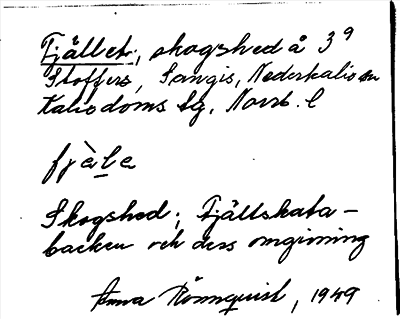 Fjället, skogshed å 3⁹
Stoffers, Sangis, Nederkalix sn
Kalix doms tg. Norrb. l
fjæ̀le
Skogshed; Fjällskata-
backen och dess omgivning
Anna Rönnquist, 1949